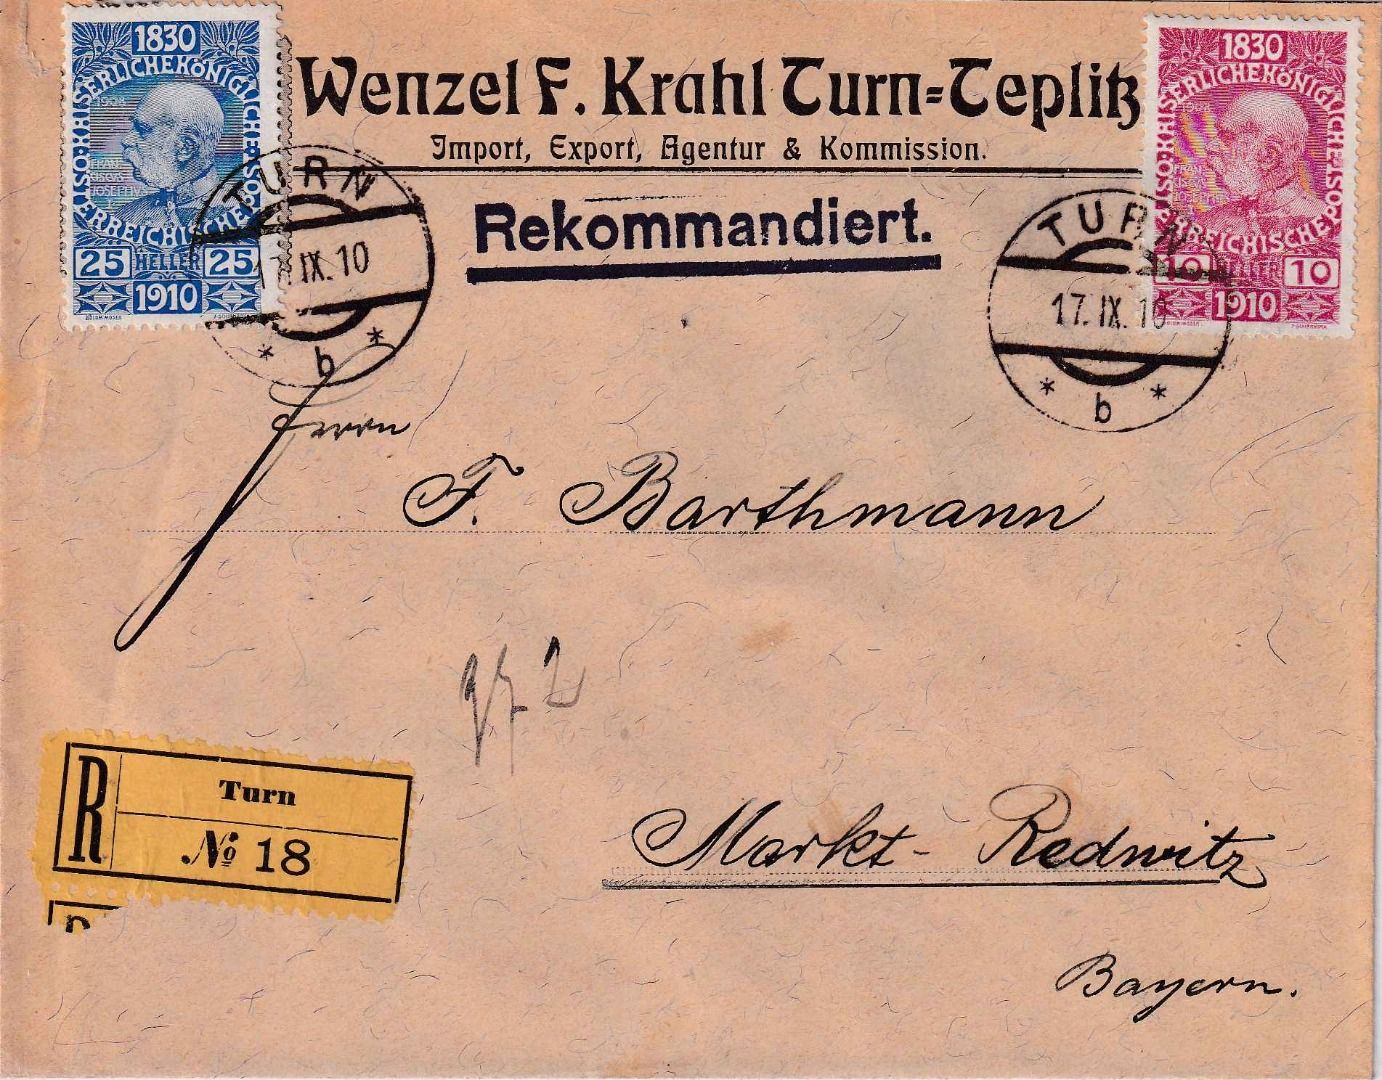 1830
KAISERLICHE KÖNIGLICHE
ÖSTERREICHISCHE
1908
FRANCISCUS JOSEPHUS
25 HELLER 25
1910
Wenzel F. Krahl Turn=Teplitz
Import, Export, Agentur & Kommission.
1830
KAISERLICHE KÖNIGLICHE
ÖSTERREICHISCHE
10 HELLER 10
1910
Rekommandiert.
TURN
17. IX. 10
* b *
TURN
17. IX. 10
* b *
Herrn
F. Barthmann
R
Turn
No 18
Markt-Redwitz
Bayern.